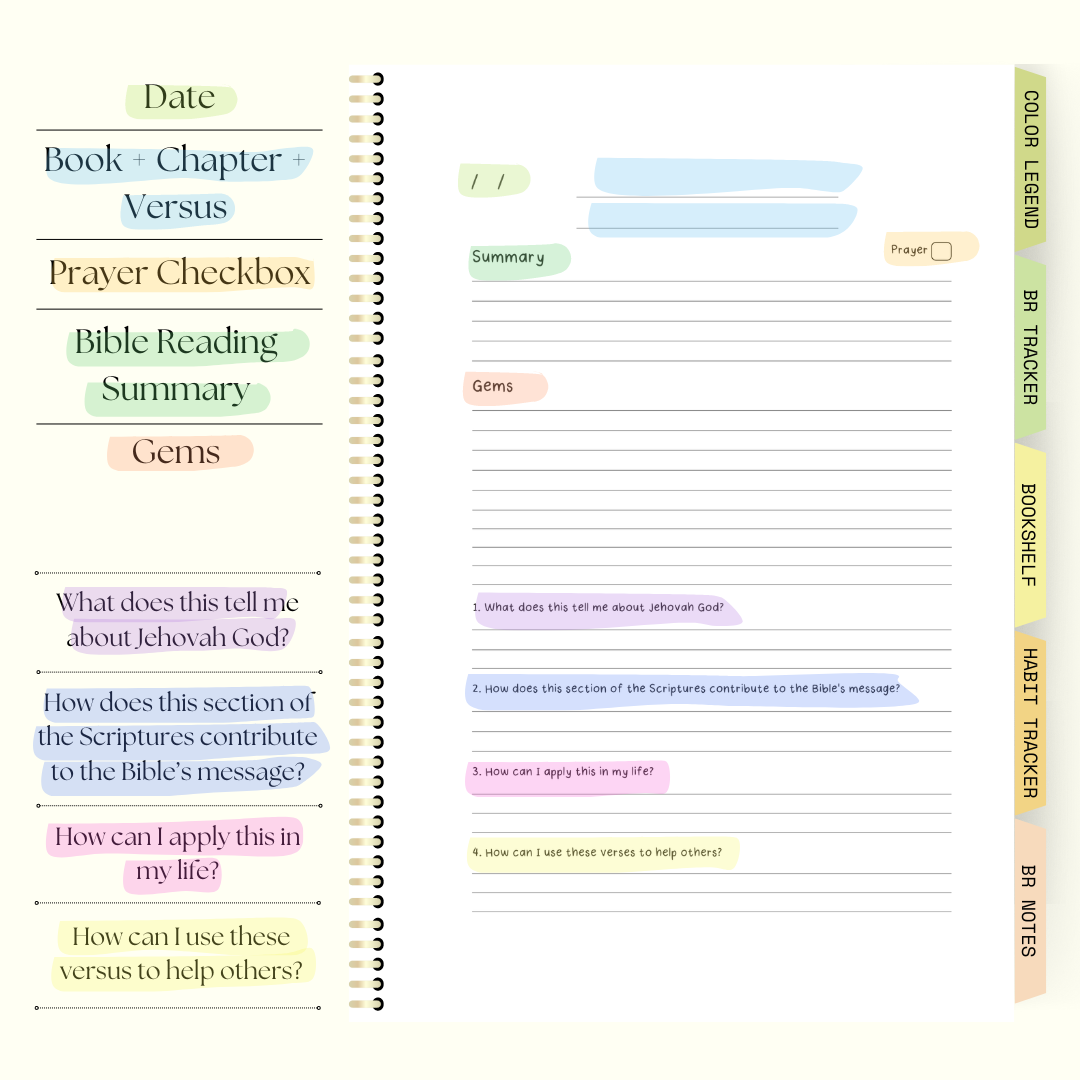 Date
Book + Chapter +
Versus
Prayer Checkbox
Bible Reading
Summary
Gems
What does this tell me
about Jehovah God?
How does this section of
the Scriptures contribute
to the Bible's message?
How can I apply this in
my life?
How can I use these
versus to help others?
/ /
Summary
Prayer
Gems
1. What does this tell me about Jehovah God?
2. How does this section of the Scriptures contribute to the Bible's message?
3. How can I apply this in my life?
4. How can I use these verses to help others?
COLOR LEGEND
BR TRACKER
BOOKSHELF
HABIT TRACKER
BR NOTES